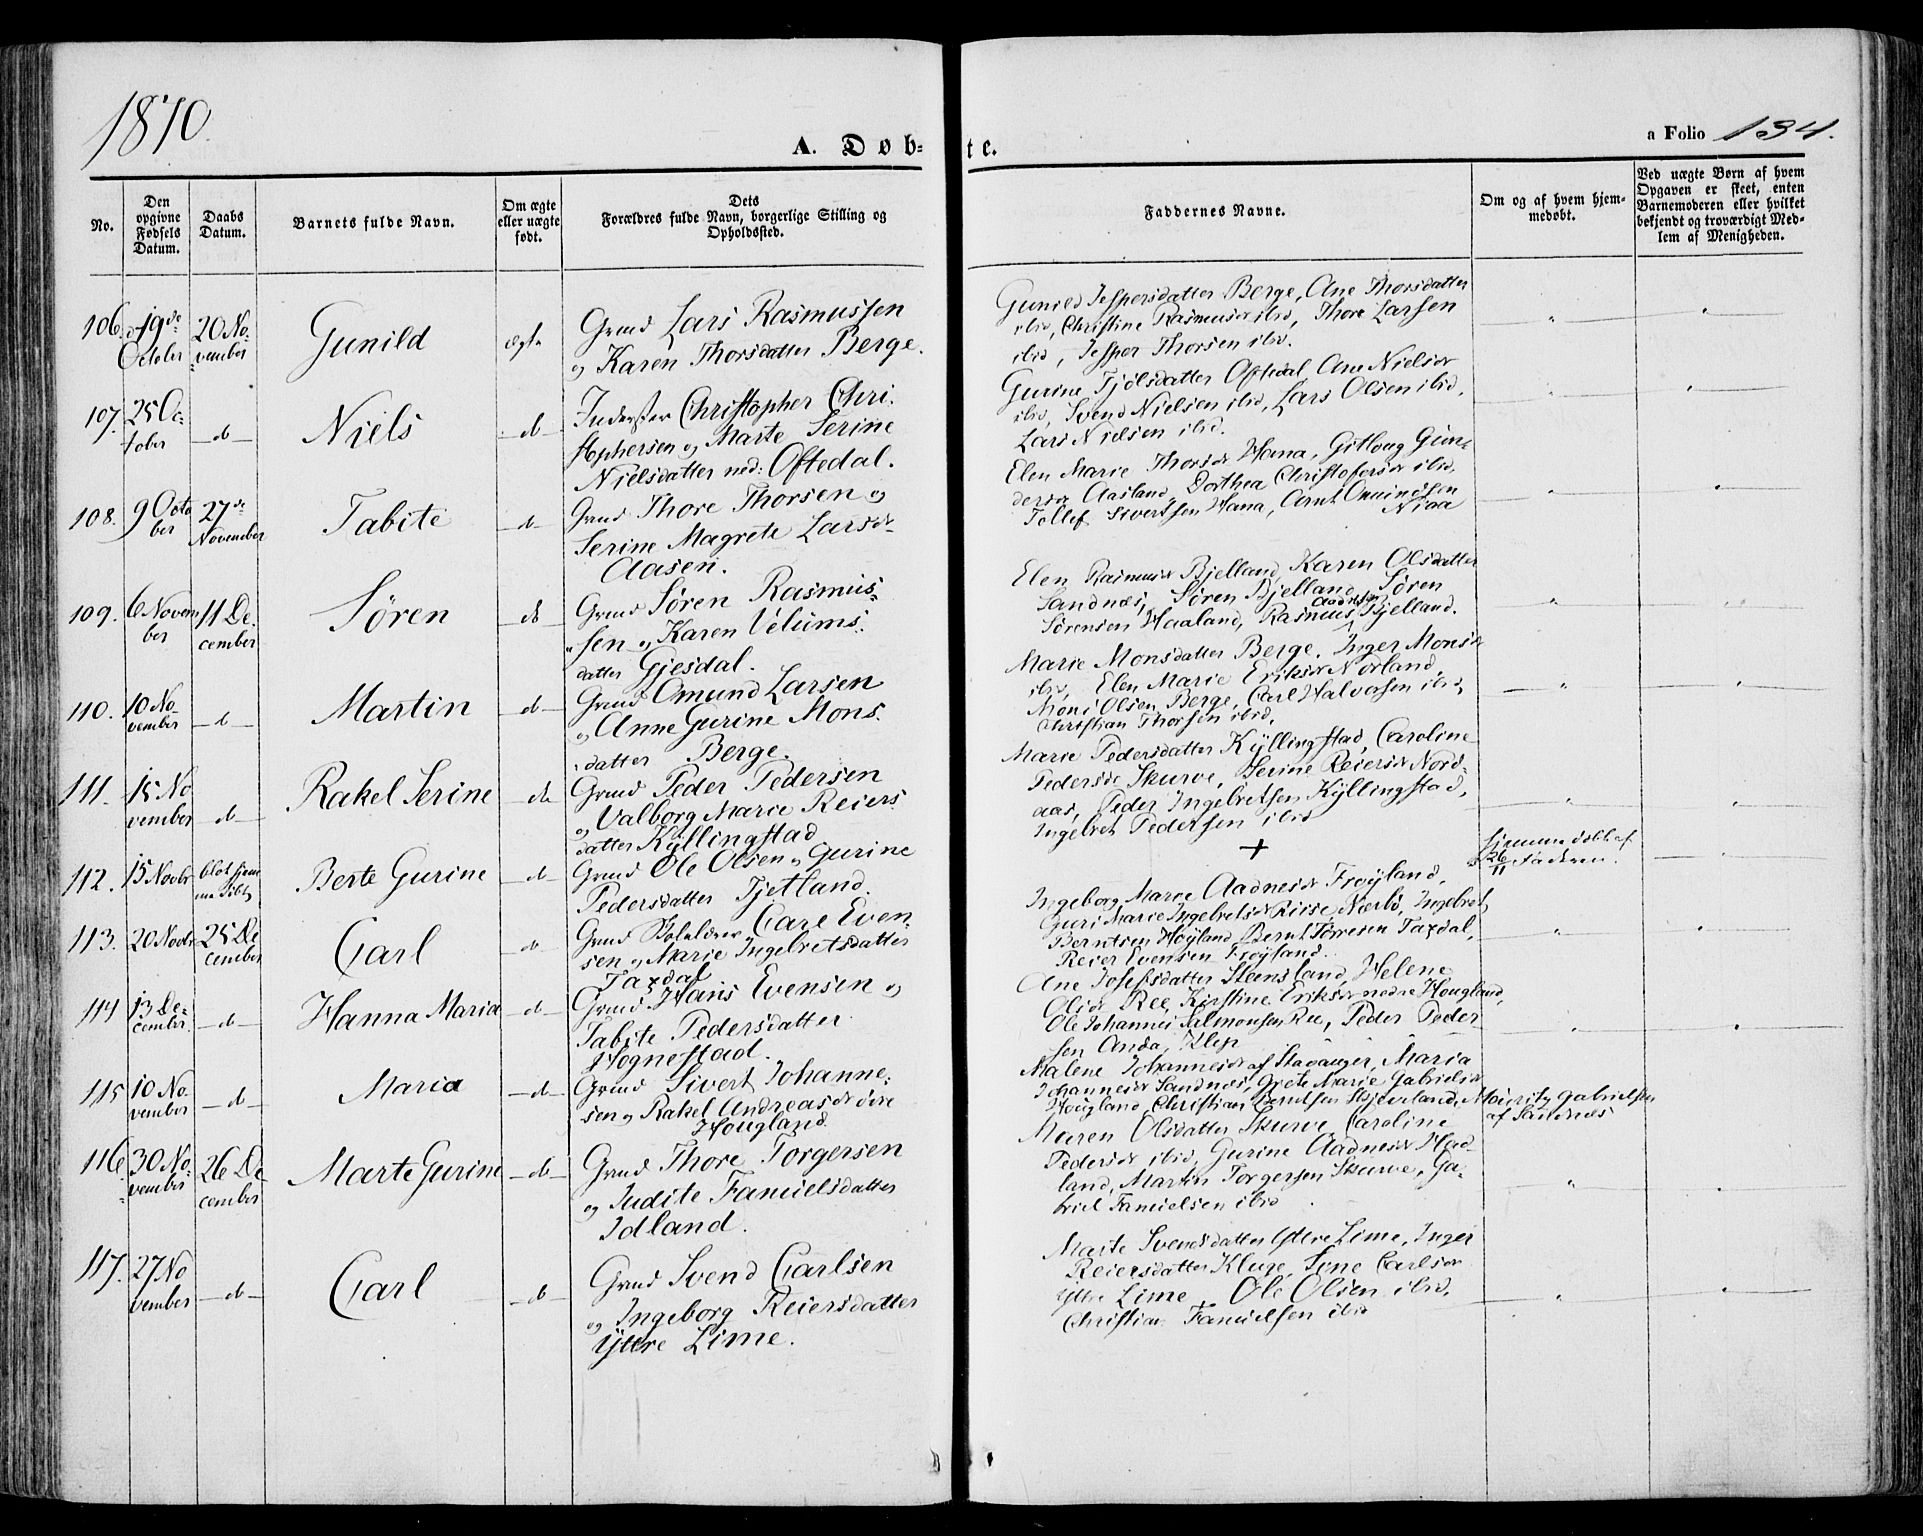 1870.
A. Døb-
te.
a Folio 134.
No.
Den opgivne Fødsels Datum.
Daabs Datum.
Barnets fulde Navn.
Om ægte eller uægte født.
Dets Forældres fulde Navn, borgerlige Stilling og Opholdssted.
Faddernes Navne.
Om og af hvem hjemmedøbt.
Ved uægte Børn af hvem Opgaven er skeet, enten Barnemoderen eller hvilket bekjendt og troværdigt Medlem af Menigheden.
106. 19de October
20 November
Gunild
ægte
Grmd Lars Rasmussen
og Karen Thorsdatter Berge.
Gunild Jespersdatter Berge, Ane Thorsdatter
ibid, Christine Rasmusdr ibid, Thore Larsen
ibid, Jesper Thorsen ibid.
107. 25 October
d
Niels
d
Inderster Christopher Chri-
stophersen og Marte Serine
Nielsdatter ned: Oftedal.
Gurine Tjølsdatter Oftedal, Ane Nielsdr
ibid, Svend Nielsen ibid, Lars Olsen ibid,
Lars Nielsen ibid.
108. 9 October
27de November
Tabite
d
Grmd Thore Thorsen og
Serine Magrete Larsdr
Aasen.
Elen Marie Thorsdr Hana, Gitloug Gun-
dersdr Aasland, Dorthea Christofersdr ibid,
Tollef Sivertsen Hana, Arnt Omundsen
Niaa
109. 6 November
11 December
Søren
d
Grmd Søren Rasmus-
sen og Karen Velums-
datter Gjesdal.
Elen Rasmusdr Bjelland, Karen Olsdatter
Sandnæs, Søren Bjelland, Søren
Sørensen Haaland, Rasmus Aadnesen Bjelland.
110. 10 November
d
Martin
d
Grmd Omund Larsen
og Anne Gurine Mons-
datter Berge.
Marie Monsdatter Berge, Inger Monsdr
ibid, Elen Marie Eriksdr Norland,
Mons Olsen Berge, Carl Halvorsen ibid,
Christian Thorsen ibid.
111. 15 November
d
Rakel Serine
d
Grmd Peder Pedersen
og Valborg Marie Reiers
datter Kyllingstad
Marie Pedersdatter Kyllingstad, Caroline
Pedersdr Skurve, Serine Reiersdr Nord-
aas, Peder Ingebretsen Kyllingstad,
Ingebret Pedersen ibid
112. 15 Novbr
blot hjemmedøbt
Berte Gurine
d
Grmd Ole Olsen og Gurine
Pedersdatter Tjetland.
+
hjemmedøbt af
26/11 Faderen.
113. 20 Novbr
25 December
Carl
d
Grmd Carl Even-
sen og Marie Ingebretsdatter
Taxdal
Ingeborg Marie Aadnesdr Frøyland,
Guri Marie Ingebretsdr Riise Nærbø, Ingebret
Berntsen Høyland, Bernt Tørresen Taxdal,
Reier Evensen Frøyland.
114 13 December
d
Hanna Maria
d
Grmd Hans Evensen og
Tabite Pedersdatter
Hognestad.
Ane Josefsdatter Steensland, Helene
Olsdr Ree, Kirstine Eriksdr nedre Hougland,
Ole Johannes Salmonsen Ree, Peder Peder
sen Anda, Klep
115 10 November
d
Maria
d
Grmd Sivert Johanne-
sen og Rakel Andreasdr øvre
Hougland.
Malene Johannesdr af Stavanger, Maria
Johannesdr Sandnæs, Grete Marie Gabrielsdr
Hougland, Christian Berntsen Skjeveland, Mauritz Gabrielsen
af Sandnæs
116. 30 November
26 December
Marte Gurine
d
Grmd Thore Torgersen
og Judite Famuelsdatter
Idland.
Maren Olsdatter Skurve, Caroline
Pedersdr ibid, Gurine Aadnesdr Had-
land, Martin Torgersen Skurve, Ga-
briel Famuelsen ibid
117. 27 November
d
Carl
d
Grmd Svend Carlsen
og Ingeborg Reiersdatter
Yttre Lime.
Marte Svendsdatter Yttre Lime, Inger
Reiersdatter Kluge, Sine Carlsdr
Yttre Lime, Ole Olsen ibid,
Christian Famuelsen ibid